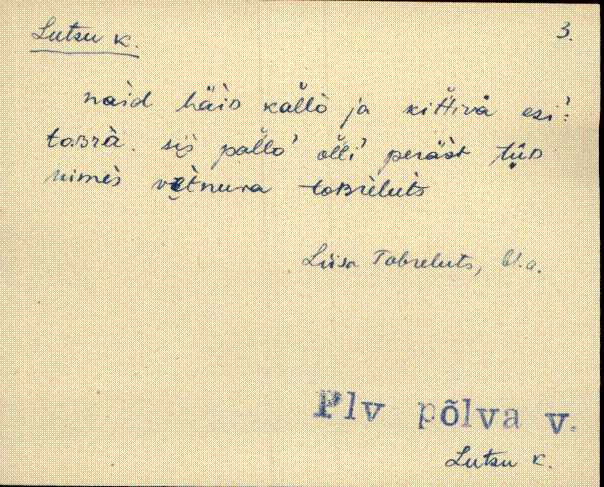 Lutsu k. 3.
naid häio kallò ja kittivä esi:
tobrà. sis pallò olli peräst tüo
nimès vetnura tobreluts
Liisa Tobreluts,
Plv põlva v.
Lutsu k.